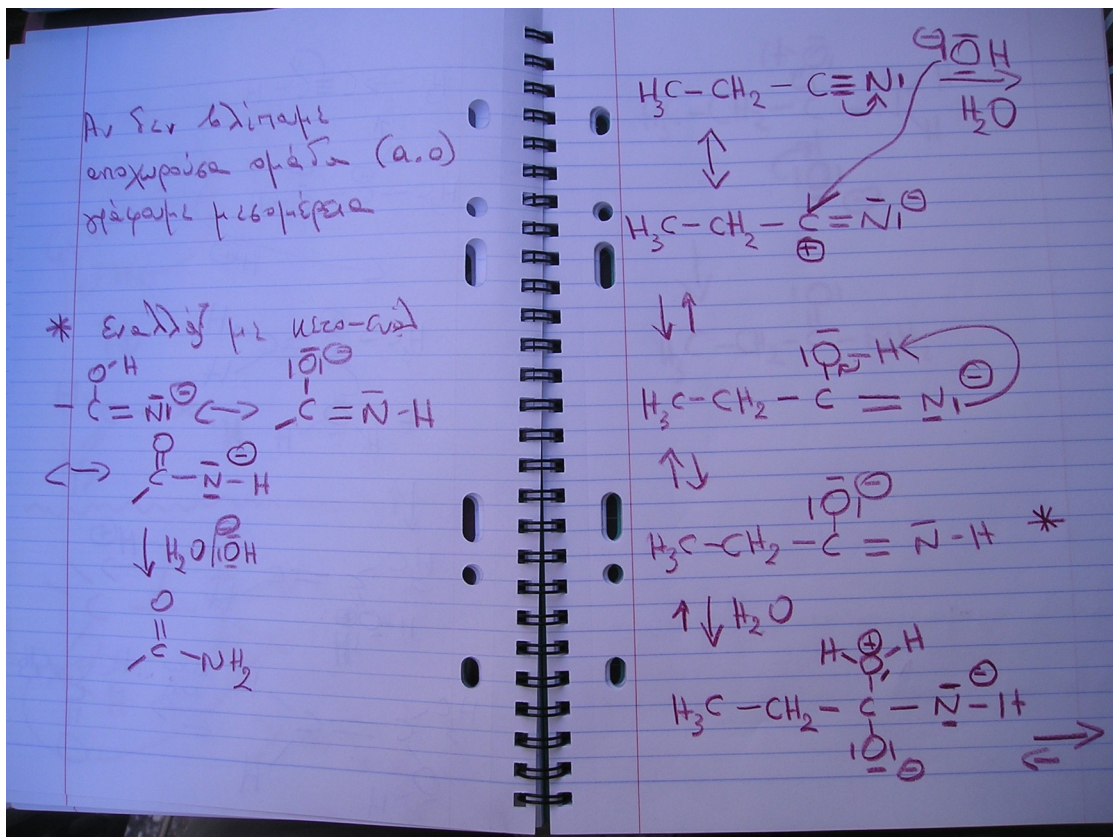 Αν δεν βλέπαμε
αποχωρούσα ομάδα (α.ο)
γράφαμε μεσομέρεια
* Εναλλάξ με κετο-ενόλ
O-H |O̅|⊖
-C=N̅|⊖ <-> C=N̅-H
<-> O
C-N̅-H ⊖
↓ H₂O/|O̅H ⊖
O
C-NH₂
H₃C-CH₂-C≡N| ⊖|O̅H
H₂O
H₃C-CH₂-C=N̅|⊖
⊕
↓↑
|O̅-H
H₃C-CH₂-C=N̅| ⊖
↑↓
|O̅|⊖
H₃C-CH₂-C=N̅-H *
↑↓ H₂O
H-O-H ⊕
H₃C-CH₂-C-N̅-H ⊖
|O̅|⊖